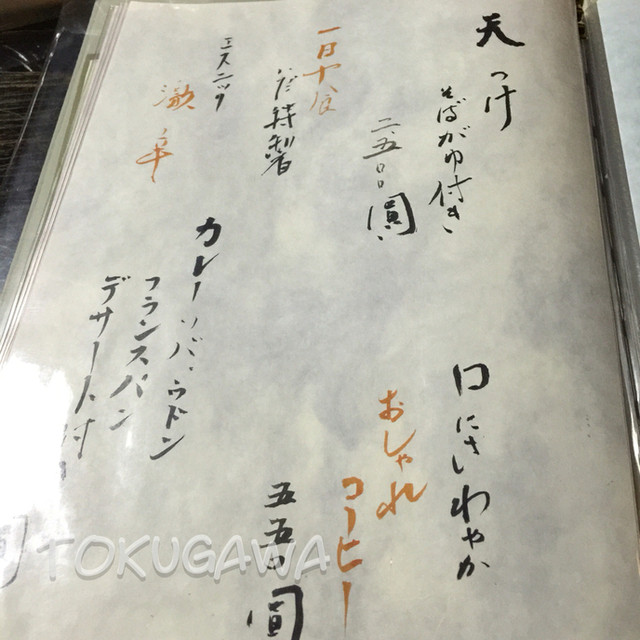 天つけ
そばがゆ付き
二、五〇〇圓、
一日十食
だけ特製
エスニック
激辛
カレーソバ、ウドン
フランスパン
デザート付
口にさわやか
おしゃれ
コーヒー
五五〇圓
TOKUGAWA